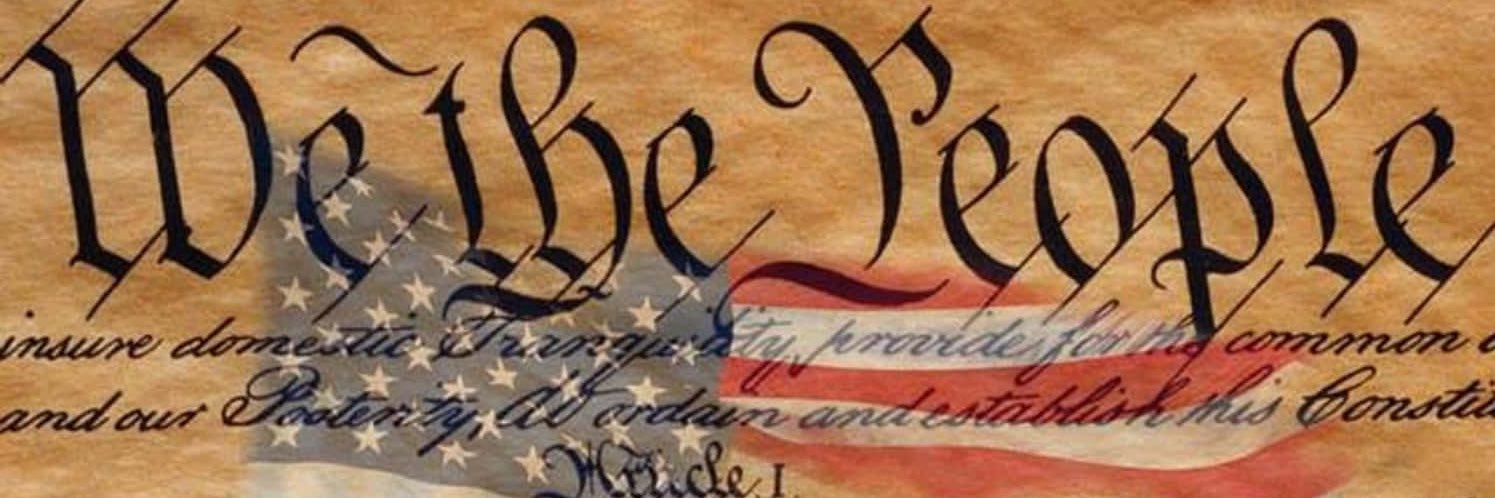 We the People
insure domestic Tranquility, provide for the common
and our Posterity, do ordain and establish this Constit
Article. I.